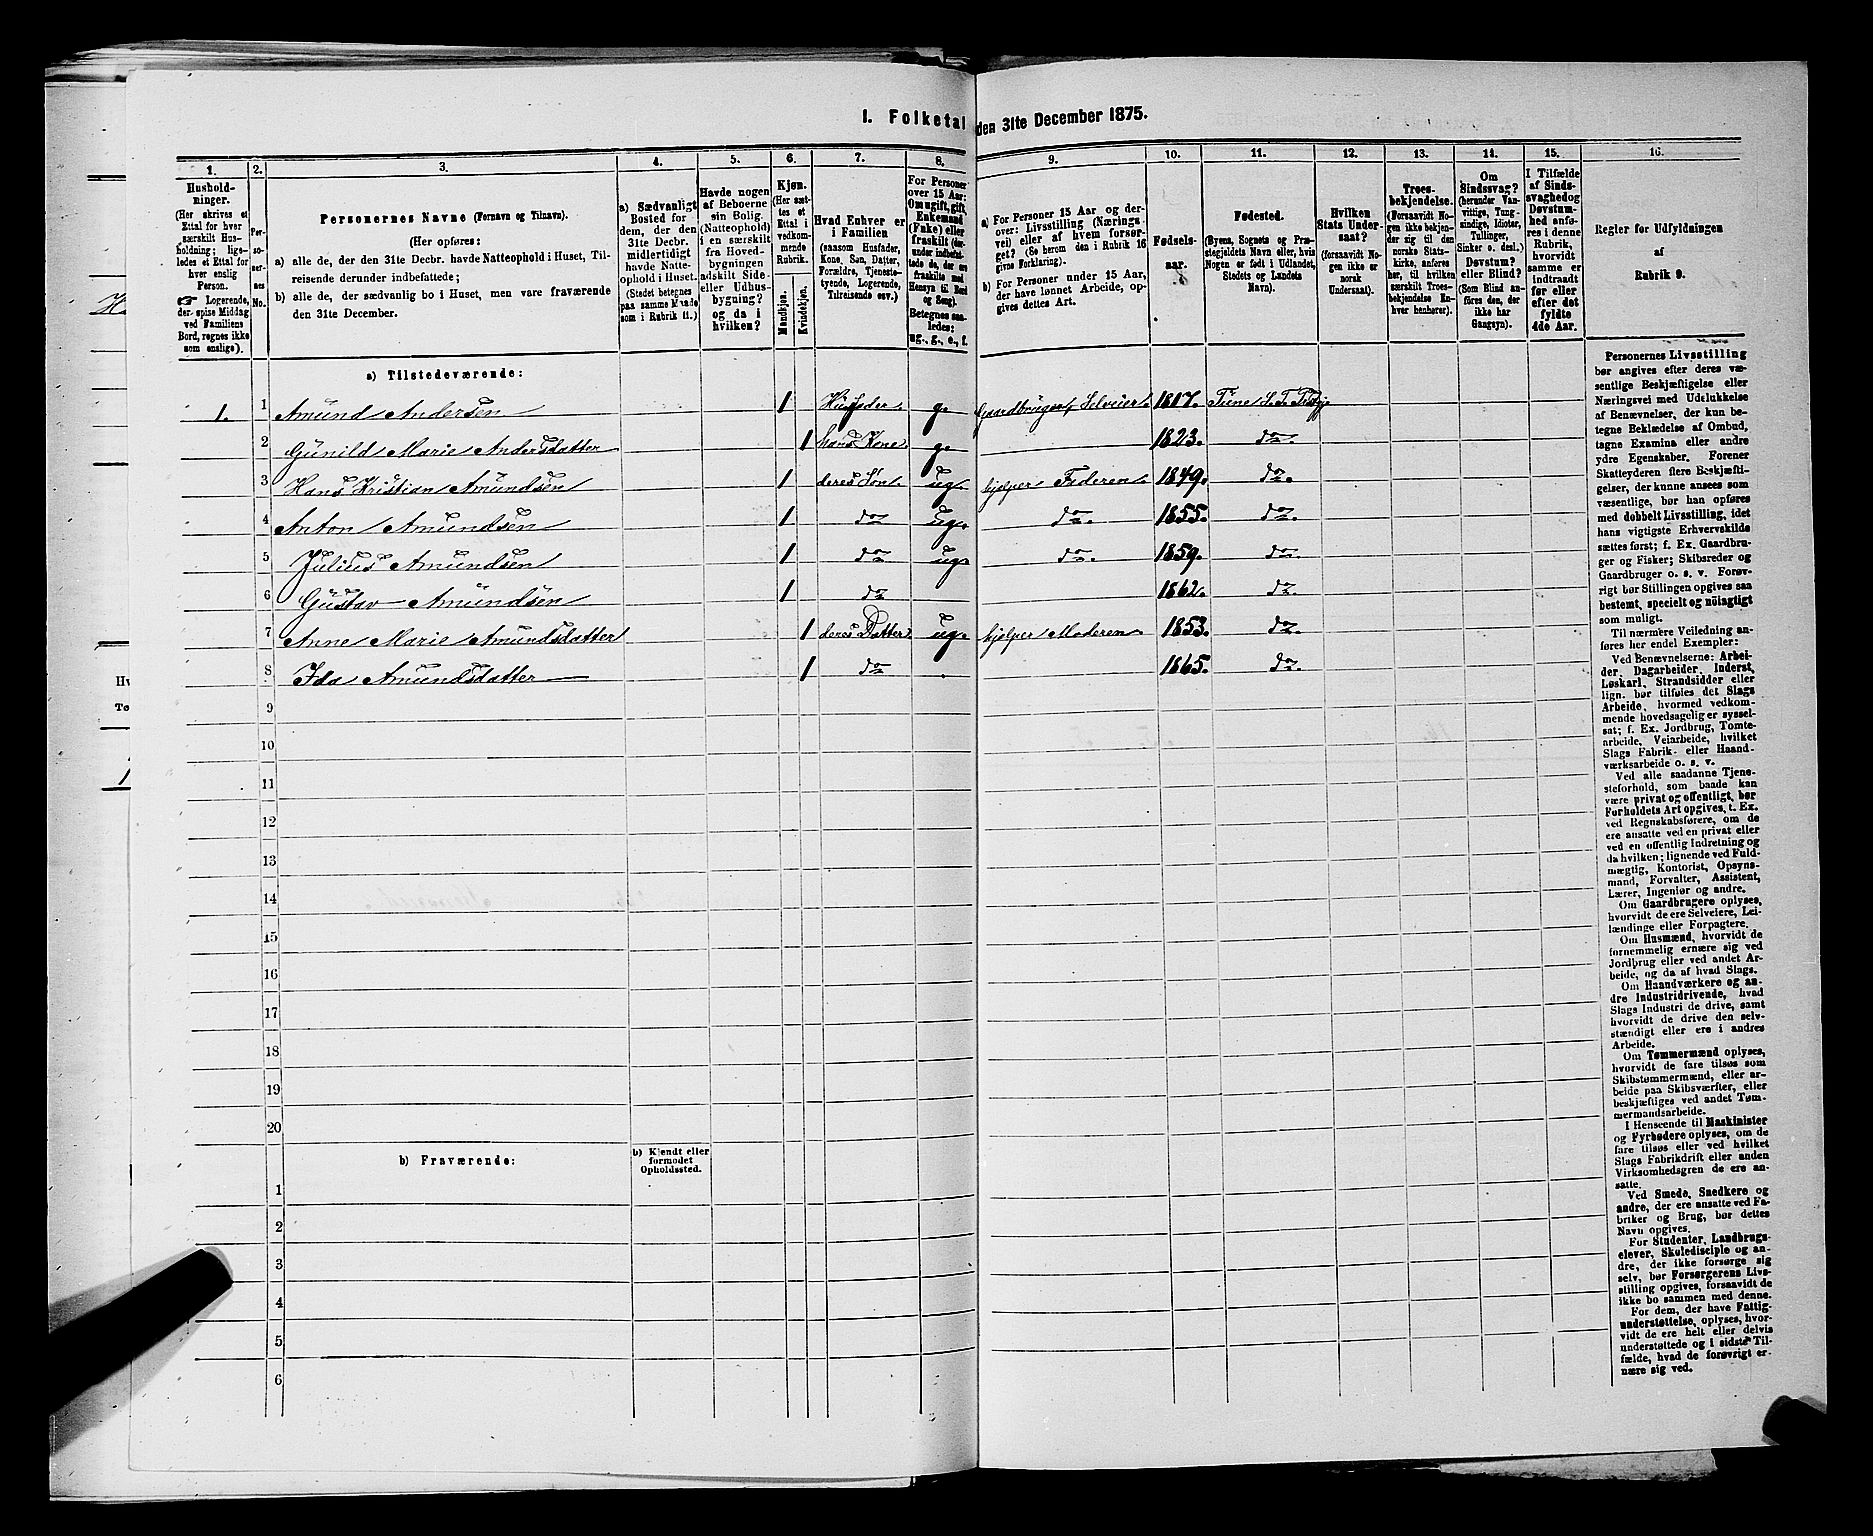 1. Folketal den 31te December 1875.
1. 2. 3. 4. 5. 6. 7. 8. 9. 10. 11. 12. 13. 14. 15. 16.
Hushold-
ninger.
(Her skrives et
Ettal for hver
særskilt Hus-
holdning; lige-
ledes et Ettal for
hver enslig
Person.
☞ Logerende,
der spise Middag
ved Familiens
Bord, regnes ikke
som enslige).
Per-
so-
ner-
nes
No.
Personernes Navne (Fornavn og Tilnavn).
(Her opføres:
a) alle de, der den 31te Decbr. havde Natteophold i Huset, Til-
reisende derunder indbefattede;
b) alle de, der sædvanlig bo i Huset, men vare fraværende
den 31te December.
a) Sædvanligt
Bosted for
dem, der den
31te Decbr.
midlertidigt
havde Natte-
ophold i Huset.
(Stedet betegnes
paa samme Maade
som i Rubrik 11.)
Havde nogen
af Beboerne
sin Bolig
(Natteophold)
i en særskilt
fra Hoved-
bygningen
adskilt Side-
eller Udhus-
bygning?
og da i
hvilken?
Kjøn.
(Her sæt-
tes et
Ettal i
vedkom-
mende
Rubrik.
Mandkjøn.
Kvindekjøn.
Hvad Enhver er
i Familien
(saasom Husfader,
Kone, Søn, Datter,
Forældre, Tjeneste-
tyende, Logerende,
Tilreisende osv.)
For Personer
over 15 Aar:
Om ugift, gift,
Enkemand
(Enke) eller
fraskilt (der-
under indbefat-
tede de, der ere
fraskilte med
Hensyn til Bord
og Seng).
Betegnes saa-
ledes:
ug., g., e., f.
a) For Personer 15 Aar og der-
over: Livsstilling (Nærings-
vei) eller af hvem forsør-
get? (Se herom den i Rubrik 16
givne Forklaring).
b) For Personer under 15 Aar,
der have lønnet Arbeide, op-
gives dettes Art.
Fødsels-
aar.
Fødested.
(Byens, Sognets og Præ-
stegjeldets Navn eller, hvis
Nogen er født i Udlandet,
Stedets og Landets
Navn).
Hvilken
Stats Under-
saat?
(forsaavidt No-
gen ikke er
norsk
Undersaat).
Troes-
bekjendelse.
(Forsaavidt No-
gen ikke bekjen-
der sig til den
norske Stats-
kirke, anføres
her, til hvilken
særskilt Troes-
bekjendelse En-
hver henhører).
Om
Sindssvag?
(herunder Van-
vittige, Tung-
sindige, Idioter,
Tullinger,
Sinker o. desl.)
Døvstum?
eller Blind?
(Som Blind an-
føres den, der
ikke har
Gangsyn).
I Tilfælde
af Sinds-
svaghed og
Døvstum-
hed anfø-
res i denne
Rubrik,
hvorvidt
samme er
indtraadt
før eller
efter det
fyldte
4de Aar.
Regler for Udfyldningen
af
Rubrik 9.
a) Tilstedeværende:
1. 1 Amund Andersen 1 Husfader g. Gaardbruger, Selveier. 1817. Tune S. T. Prstgj
2 Gunild Marie Andersdatter 1 hans Kone g. 1823. do.
3 Hans Kristian Amundsen 1 deres Søn ug. hjelper Faderen. 1849. do.
4 Anton Amundsen 1 do ug. do. 1855. do.
5 Julius Amundsen 1 do ug. do. 1859. do.
6 Gustav Amundsen 1 do 1862. do.
7 Anne Marie Amundsdatter 1 deres Datter ug. hjelper Moderen. 1853. do.
8 Ida Amundsdatter 1 do 1865. do.
9
10
11
12
13
14
15
16
17
18
19
20
b) Fraværende:
b) Kjendt eller
formodet
Opholdssted.
1
2
3
4
5
6
Personernes Livsstilling
bør angives efter deres væ-
sentlige Beskjæftigelse eller
Næringsvei med Udelukkelse
af Benævnelser, der kun be-
tegne Beklædelse af Ombud,
tagne Examina eller andre
ydre Egenskaber. Forener
Skatteyderen flere Beskjæfti-
gelser, der kunne ansees som
væsentlige, bør han opføres
med dobbelt Livsstilling, idet
hans vigtigste Erhvervskilde
sættes først; f. Ex. Gaardbru-
ger og Fisker; Skibsreder og
Gaardbruger o. s. v. Forøv-
rigt bør Stillingen opgives saa
bestemt, specielt og nøiagtigt
som muligt.
Til nærmere Veiledning an-
føres her endel Exempler:
Ved Benævnelserne: Arbei-
der, Dagarbeider, Inderst,
Løskarl, Strandsidder eller
lign. bør tilføies det Slags
Arbeide, hvormed vedkom-
mende hovedsagelig er syssel-
sat; f. Ex. Jordbrug, Tomte-
arbeide, Veiarbeide, hvilket
Slags Fabrik- eller Haand-
værksarbeide o. s. v.
Ved alle saadanne Tjene-
steforhold, som baade kan
være privat og offentligt, bør
Forholdets Art opgives, t. Ex.
ved Regnskabsførere, om de
ere ansatte ved en privat eller
ved en offentlig Indretning og
da hvilken; lignende ved Fuld-
mægtig, Kontorist, Opsyns-
mand, Forvalter, Assistent,
Lærer, Ingeniør og andre.
Om Gaardbrugere oplyses,
hvorvidt de ere Selveiere, Lei-
lændinge eller Forpagtere.
Om Husmænd, hvorvidt de
fornemmelig ernære sig ved
Jordbrug eller ved andet Ar-
beide, og da af hvad Slags.
Om Haandværkere og an-
dre Industridrivende, hvad
Slags Industri de drive, samt
hvorvidt de drive den selv-
stændigt eller ere i andres
Arbeide.
Om Tømmermænd oplyses,
hvorvidt de fare tilsøs som
Skibstømmermænd, eller ar-
beide paa Skibsværfter, eller
beskjæftiges ved andet Tøm-
mermandsarbeide.
I Henseende til Maskinister
og Fyrbødere oplyses, om de
fare tilsøs eller ved hvilket
Slags Fabrikdrift eller anden
Virksomhedsgren de ere an-
satte.
Ved Smede, Snedkere og
andre, der ere ansatte ved Fa-
briker og Brug, bør dettes
Navn opgives.
For Studenter, Landbrugs-
elever, Skoledisciple og an-
dre, der ikke forsørge sig
selv, bør Forsørgerens Livs-
stilling opgives, forsaavidt de
ikke bo sammen med denne.
For dem, der have Fattig-
understøttelse, oplyses, hvor-
vidt de ere helt eller delvis
understøttede og i sidste Til-
fælde, hvad de forøvrigt er-
nære sig ved.